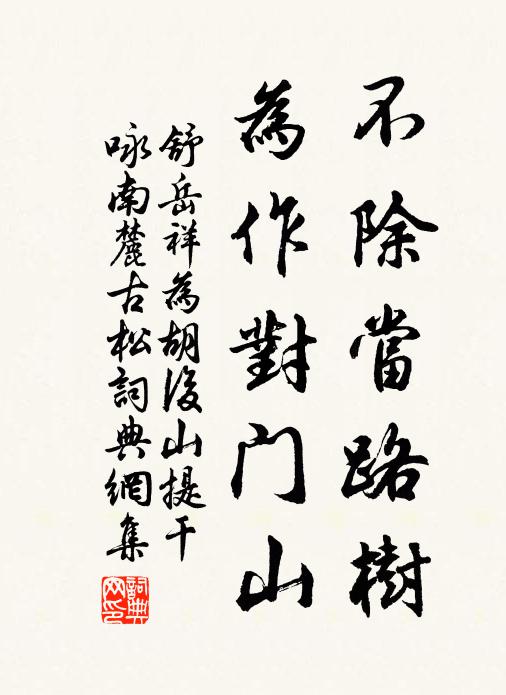 不除當路樹
為作對门山
舒岳祥為胡後山提干
咏南麓古松詞典網集
詞典网印